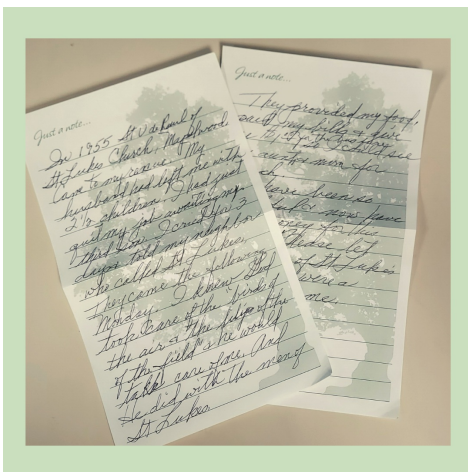 Just a note...
In 1955 St V de Paul of
St Lukes Church, Maplewood
Came to my rescue. My
husband had left me with
2 ½ children. I had just
quit my job awaiting my
third son. I cried for 3
days told my neighbor
who called St Lukes.
They came the following
Monday. I knew God
took care of the birds of
the air & the lilys of the
of the field & he would
take care of me. And
He did with the men of
St Lukes
Just a note...
They provided my food,
paid my bills & give
me
could see
man for
have been so
now have
money for this
Please let
of St Luke's
were a
me.